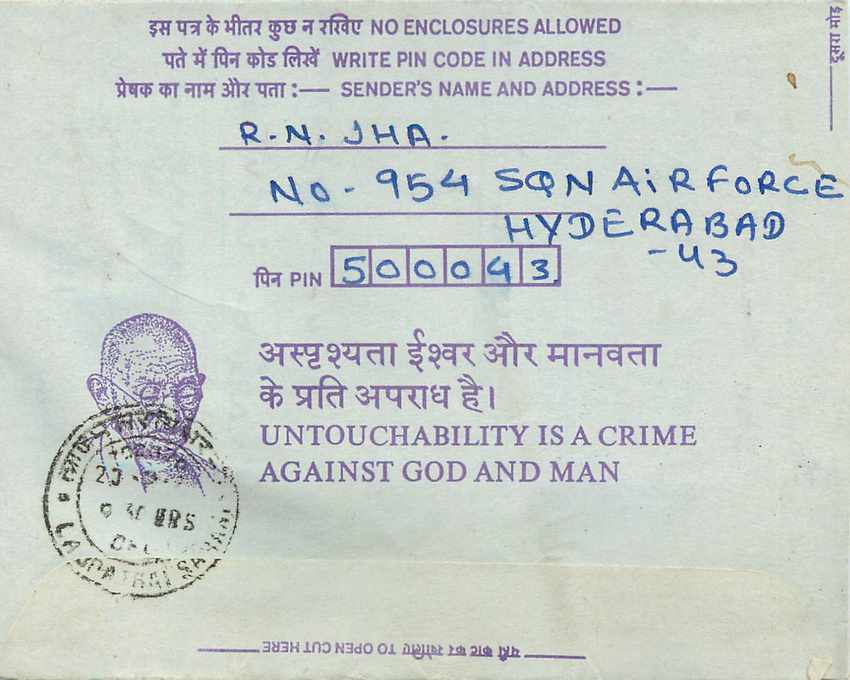 इस पत्र के भीतर कुछ न रखिए NO ENCLOSURES ALLOWED
पते में पिन कोड लिखें WRITE PIN CODE IN ADDRESS
प्रेषक का नाम और पता :— SENDER'S NAME AND ADDRESS :—
R. N. JHA.
NO - 954 SQN AiR FORCE
HYDERABAD
-43
पिन PIN 500043
अस्पृश्यता ईश्वर और मानवता
के प्रति अपराध है।
UNTOUCHABILITY IS A CRIME
AGAINST GOD AND MAN
9 30 HRS
LAJPATRAI
यहाँ काट कर खोलिए TO OPEN CUT HERE
दूसरा मोड़